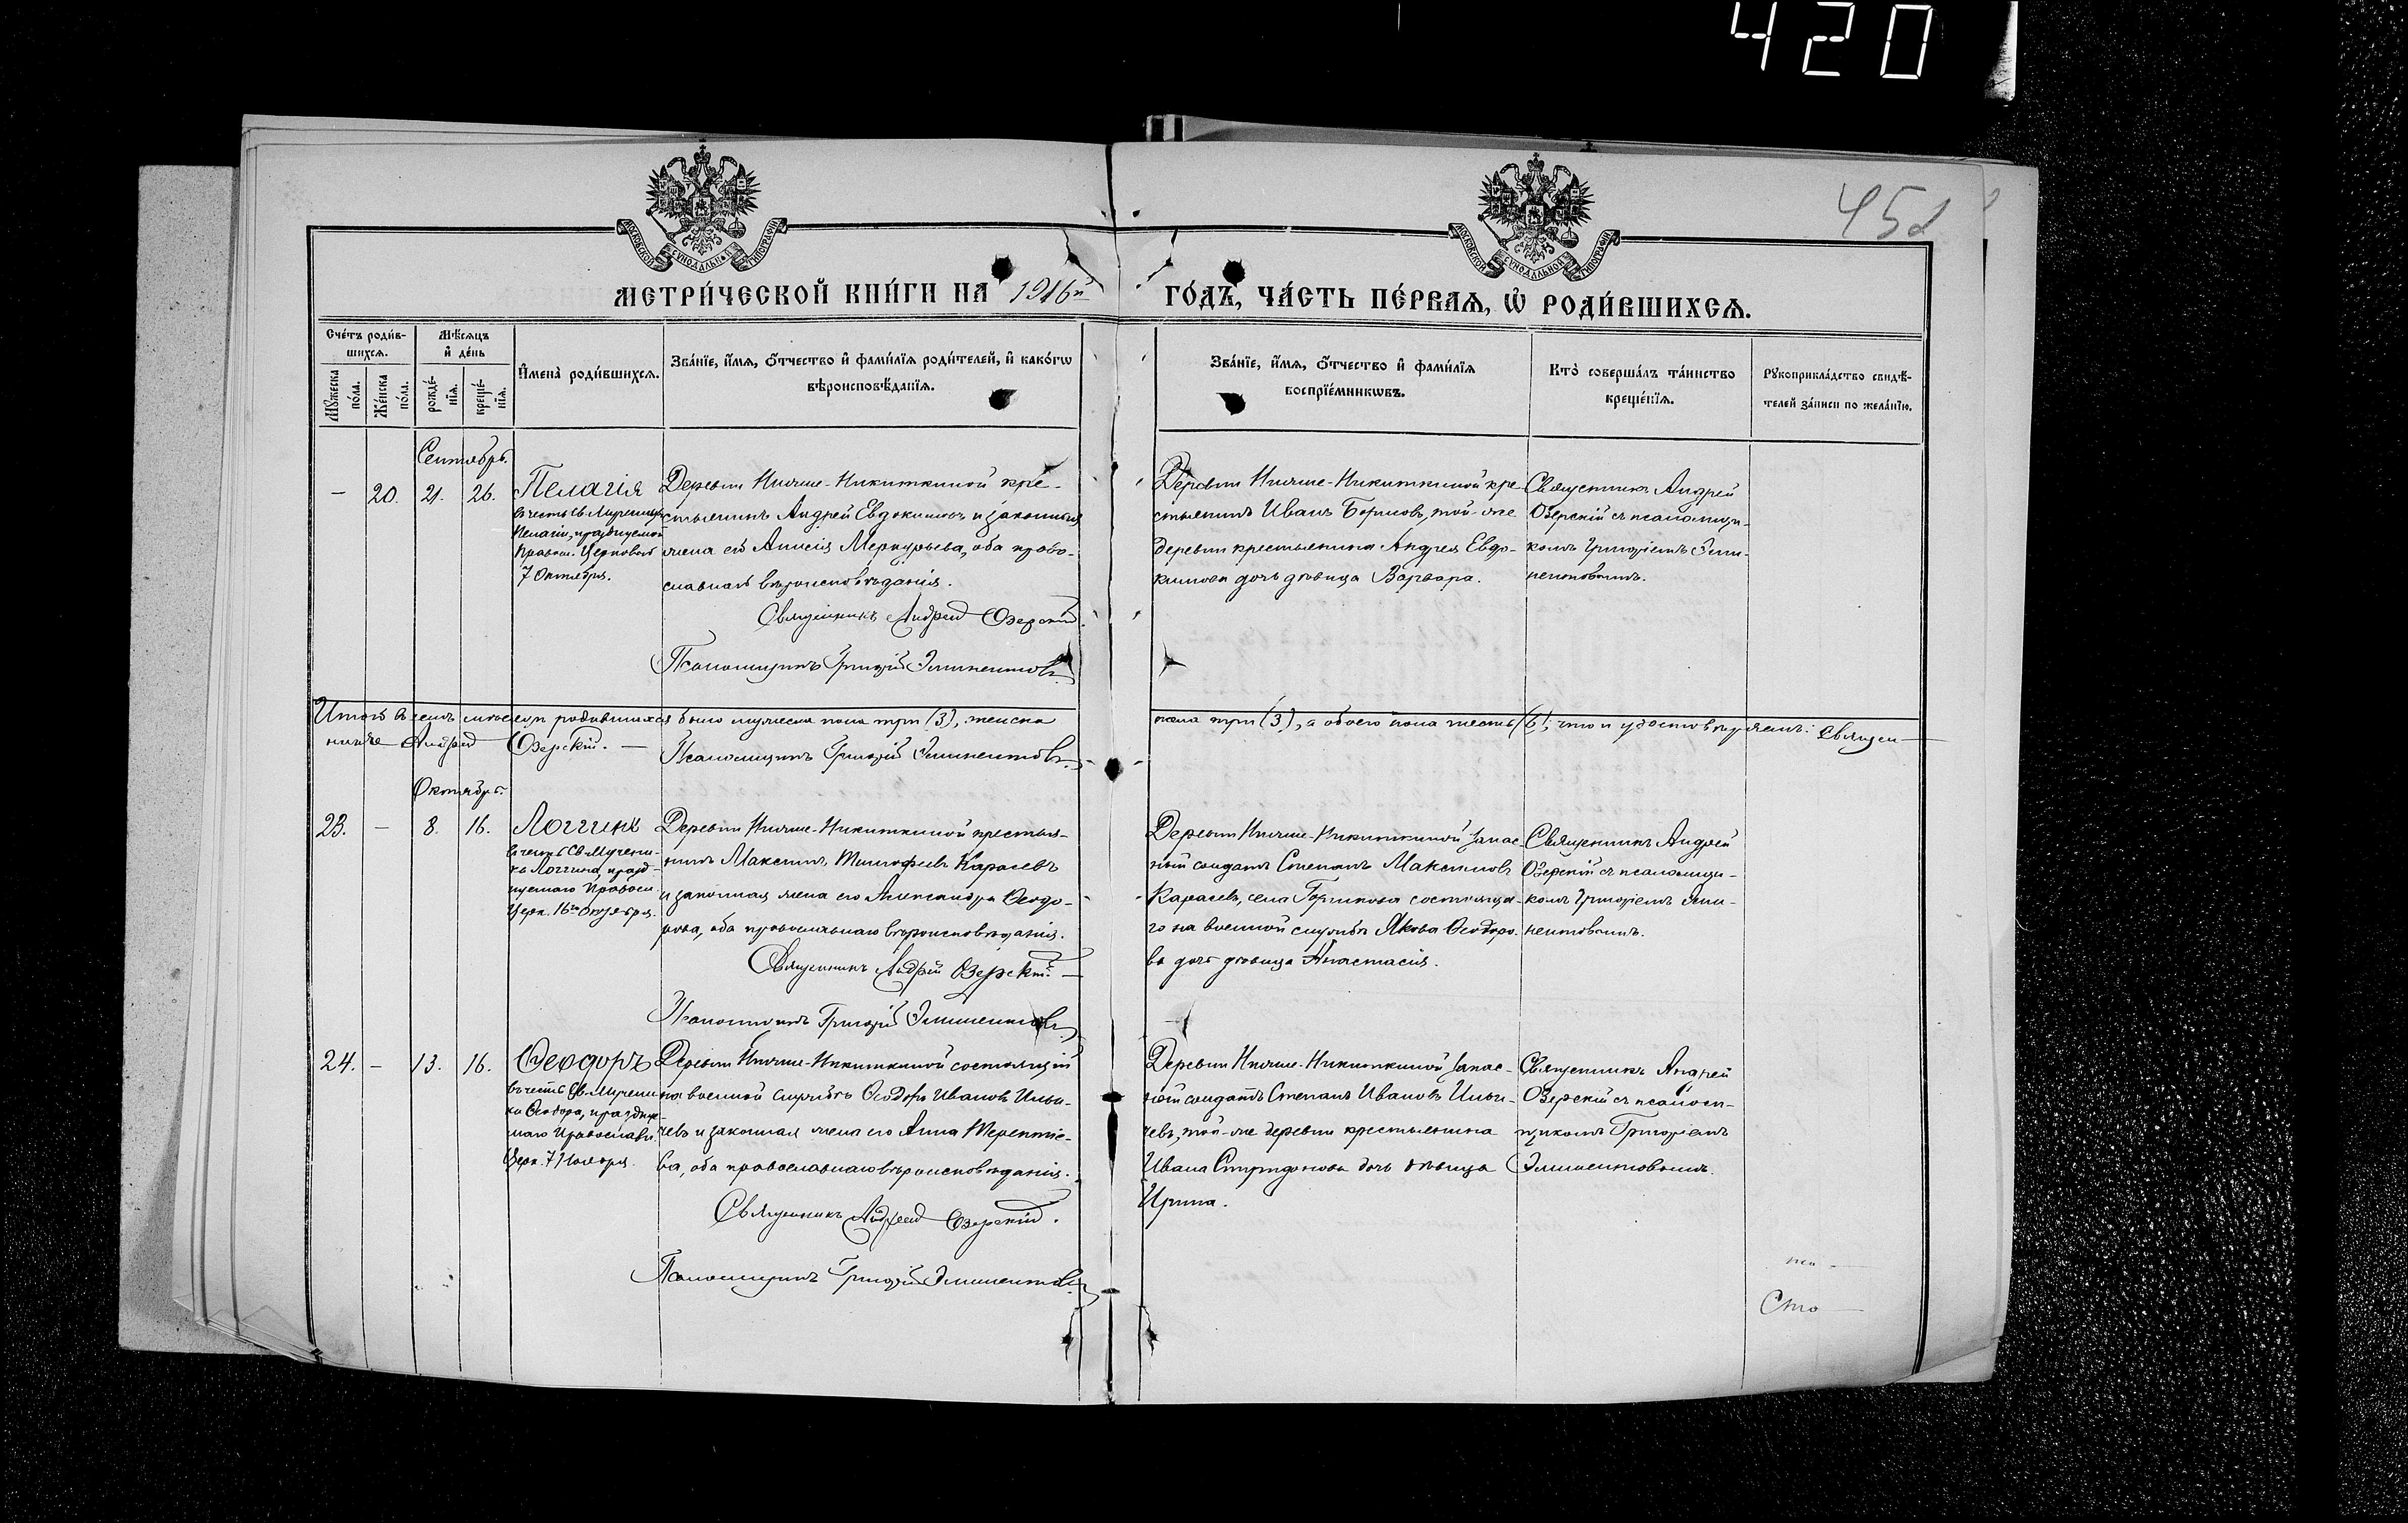 420
452
МОСКОВСКОЙ СУНОДАЛЬНОЙ ТИПОГРАФІИ
МОСКОВСКОЙ СУНОДАЛЬНОЙ ТИПОГРАФІИ
МЕТРИ́ЧЕСКОЙ КНИ́ГИ НА 1916й ГО́ДЪ, ЧА́СТЬ ПЕ́РВАѦ, Ѽ РОДИ́ВШИХСѦ.
Сче́тъ роди́в-
шихсѧ.
Мꙋ́жеска по́ла.
Же́нска по́ла.
Мѣ́сѧцъ
и҆ де́нь
рожде́-
нїѧ.
креще́-
нїѧ.
И҆мена̀ роди́вшихсѧ.
Зва́нїе, и҆́мѧ, ѻ҆́тчество и҆ фами́лїѧ роди́телей, и҆ како́гѡ
вѣроисповѣ́данїѧ.
Зва́нїе, и҆́мѧ, ѻ҆́тчество и҆ фами́лїѧ
воспрїе́мникѡвъ.
Кто̀ соверша́лъ та́инство
креще́нїѧ.
Рꙋкоприкла́дство свидѣ́-
телей за́писи по жела́нїю.
Сентябрь.
— 20. 21. 26.
Пелагія
въ честь Св. Мученицы
Пелагіи, празднуемой
Правосл. Церковью
7 Октября.
Деревни Нижне-Никиткиной кре-
стьянинъ Андрей Евдокимовъ и законная
жена его Анисія Меркурьева, оба право-
славнаго вѣроисповѣданія.
Священникъ Андрей Озерскій.
Псаломщикъ Григорій Эминентовъ.
Деревни Нижне-Никиткиной кре-
стьянинъ Иванъ Борисовъ, той-же
деревни крестьянина Андрея Евдо-
кимова дочь дѣвица Варвара.
Священникъ Андрей
Озерскій съ псаломщи-
комъ Григоріемъ Эми-
нентовымъ.
Итого въ семъ мѣсяцѣ родившихся было мужеска пола три (3), женска пола три (3), а обоего пола шесть (6); что и удостовѣряемъ: Священ-
никъ Андрей Озерскій. — Псаломщикъ Григорій Эминентовъ.
Октябрь.
23. — 8. 16.
Логгинъ
въ честь Св. Мучени-
ка Логгина, празд-
нуемаго Правосл.
Церк. 16го Октября.
Деревни Нижне-Никиткиной крестья-
нинъ Максимъ Тимофеевъ Карасевъ
и законная жена его Александра Ѳеодо-
рова, оба православнаго вѣроисповѣданія.
Священникъ Андрей Озерскій. —
Псаломщикъ Григорій Эминентовъ.
Деревни Нижне-Никиткиной запас-
ный солдатъ Степанъ Максимовъ
Карасевъ, села состояща-
го на военной службѣ Якова Ѳеодоро-
ва дочь дѣвица Анастасія.
Священникъ Андрей
Озерскій съ псаломщи-
комъ Григоріемъ Эми-
нентовымъ.
24. — 13. 16.
Ѳеодоръ
въ честь Св. Мучени-
ка Ѳеодора, праздну-
маго Православн.
Церк. 7 Ноября.
Деревни Нижне-Никиткиной состоящій
на военной службѣ Ѳеодоръ Ивановъ Ильи-
чевъ и законная жена его Анна Терентіе-
ва, оба православнаго вѣроисповѣданія.
Священникъ Андрей Озерскій.
Псаломщикъ Григорій Эминентовъ.
Деревни Нижне-Никиткиной запас-
ной солдатъ Степанъ Ивановъ Ильи-
чевъ, той-же деревни крестьянина
Ивана Спиридонова дочь дѣвица
Ирина.
Священникъ Андрей
Озерскій съ псаломщ-
икомъ Григоріемъ
Эминентовымъ.
Сто